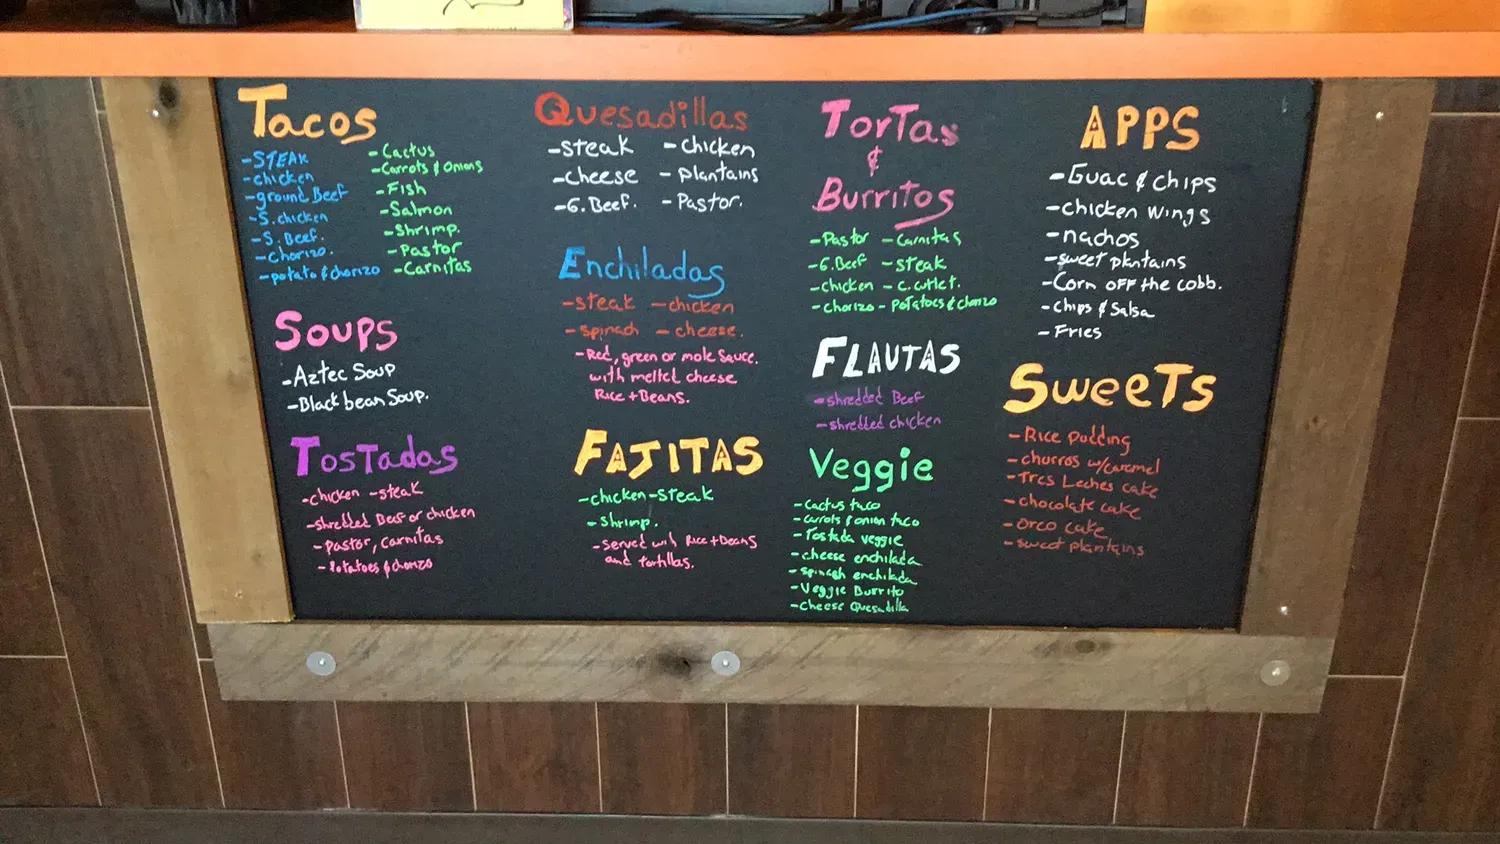 Tacos
-STEAK
-chicken
-ground Beef
-S. chicken
-S. Beef.
-chorizo.
-potato & chorizo
-Cactus
-Carrots & Onions
-Fish
-Salmon
-Shrimp.
-Pastor
-Carnitas
Soups
-Aztec Soup
-Black bean Soup.
Tostadas
-chicken -steak
-shredded Beef or chicken
-pastor, carnitas
-Potatoes & chorizo
Quesadillas
-steak -chicken
-cheese -plantains
-G. Beef. -Pastor.
Enchiladas
-steak -chicken
-spinach -cheese.
-Red, green or mole Sauce.
with melted cheese
Rice + Beans.
FAJITAS
-chicken-steak
-Shrimp.
-served with Rice + Beans
and tortillas.
TorTas
&
Burritos
-Pastor -Carnitas
-G.Beef -steak
-chicken -c. cutlet.
-chorizo - potatoes & chorizo
FLAUTAS
-shredded Beef
-shredded chicken
Veggie
-Cactus taco
-carrots & onion taco
-Tostada veggie
-cheese enchilada
-spinach enchilada
-Veggie Burrito
-Cheese Quesadilla
APPS
-Guac & chips
-chicken wings
-nachos
-sweet plantains
-Corn off the cobb.
-Chips & Salsa
-Fries
SweeTs
-Rice pudding
-churros w/caramel
-Tres Leches cake
-chocolate cake
-Oreo cake
-sweet plantains